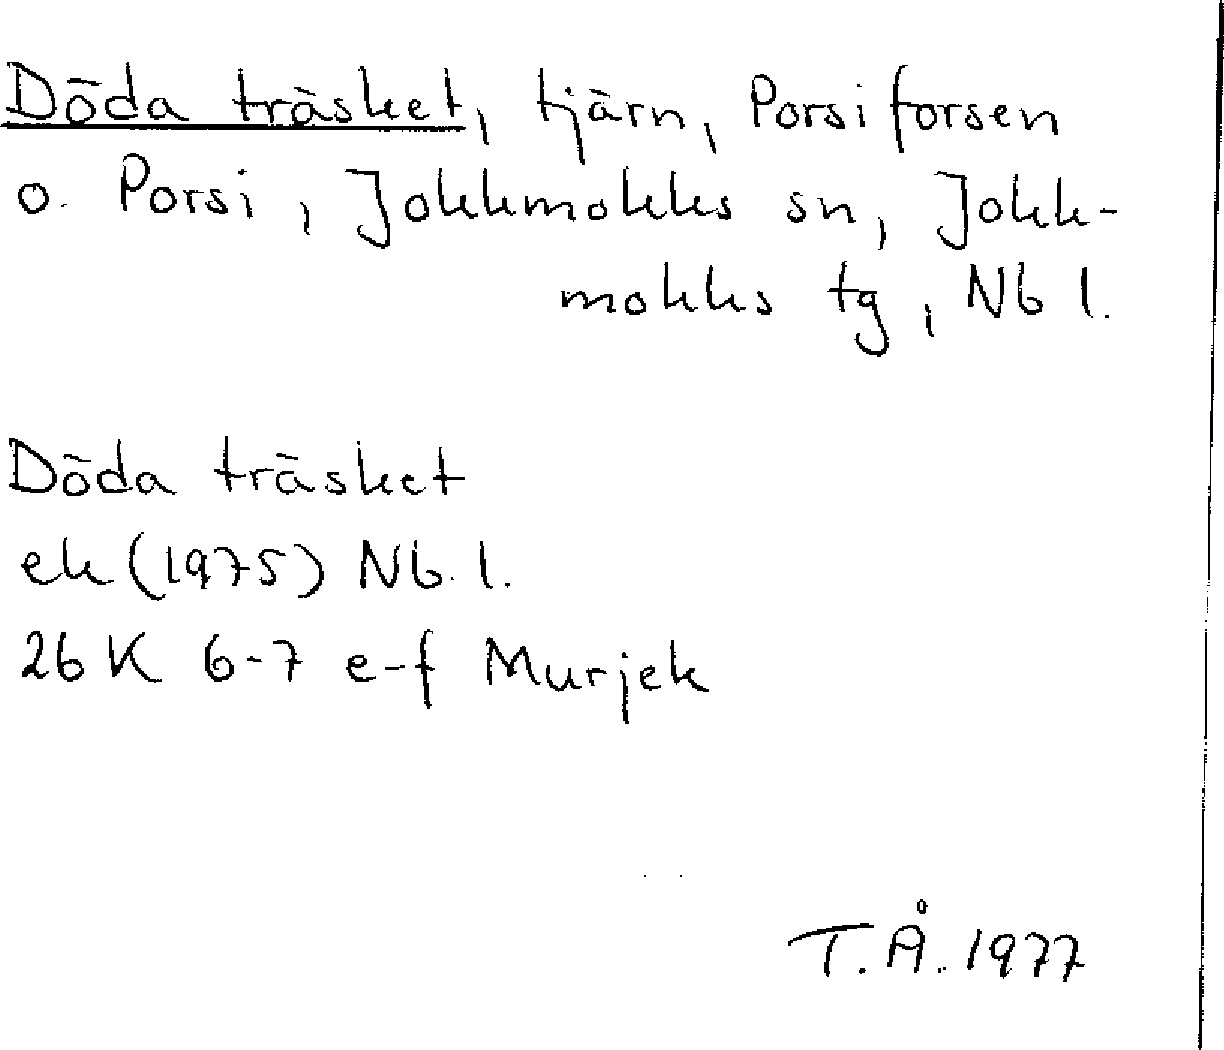 Döda träsket, tjärn, Porsiforsen
o. Porsi, Jokkmokks sn, Jokk-
mokks tg, Nb l.
Döda träsket
ek (1975) Nb. l.
26 K 6-7 e-f Murjek
T.Å. 1977